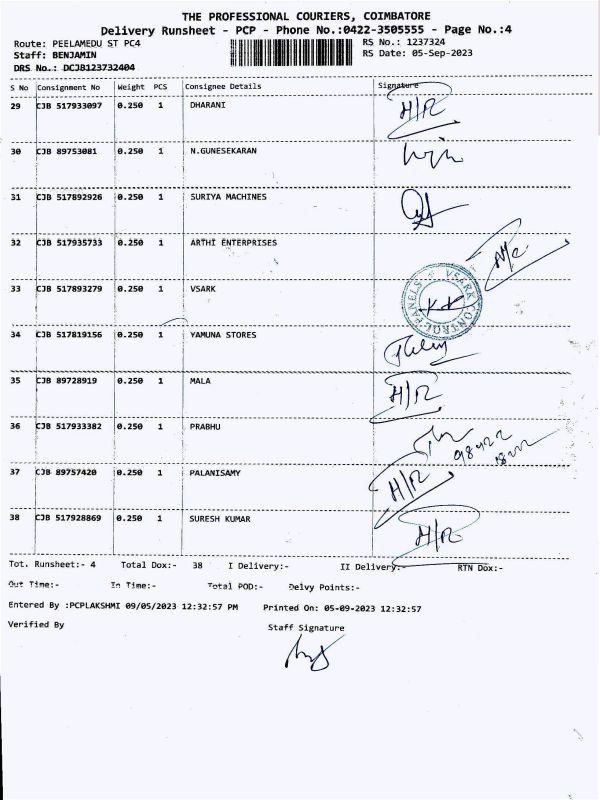 THE PROFESSIONAL COURIERS, COIMBATORE
Delivery Runsheet - PCP - Phone No.:0422-3505555 - Page No.:4
Route: PEELAMEDU ST PC4 RS No.: 1237324
Staff: BENJAMIN RS Date: 05-Sep-2023
DRS No.: DCJB123732404
S No Consignment No Weight PCS Consignee Details Signature
29 CJB 517933097 0.250 1 DHARANI H/R
30 CJB 89753081 0.250 1 N.GUNESEKARAN
31 CJB 517892926 0.250 1 SURIYA MACHINES
32 CJB 517935733 0.250 1 ARTHI ENTERPRISES
33 CJB 517893279 0.250 1 VSARK VSARK CONTROL PANELS
34 CJB 517819156 0.250 1 YAMUNA STORES
35 CJB 89728919 0.250 1 MALA H/R
36 CJB 517933382 0.250 1 PRABHU
98422
37 CJB 89757420 0.250 1 PALANISAMY H/R
38 CJB 517928869 0.250 1 SURESH KUMAR H/R
Tot. Runsheet:- 4 Total Dox:- 38 I Delivery:- II Delivery:- RTN Dox:-
Out Time:- In Time:- Total POD:- Delvy Points:-
Entered By :PCPLAKSHMI 09/05/2023 12:32:57 PM Printed On: 05-09-2023 12:32:57
Verified By Staff Signature